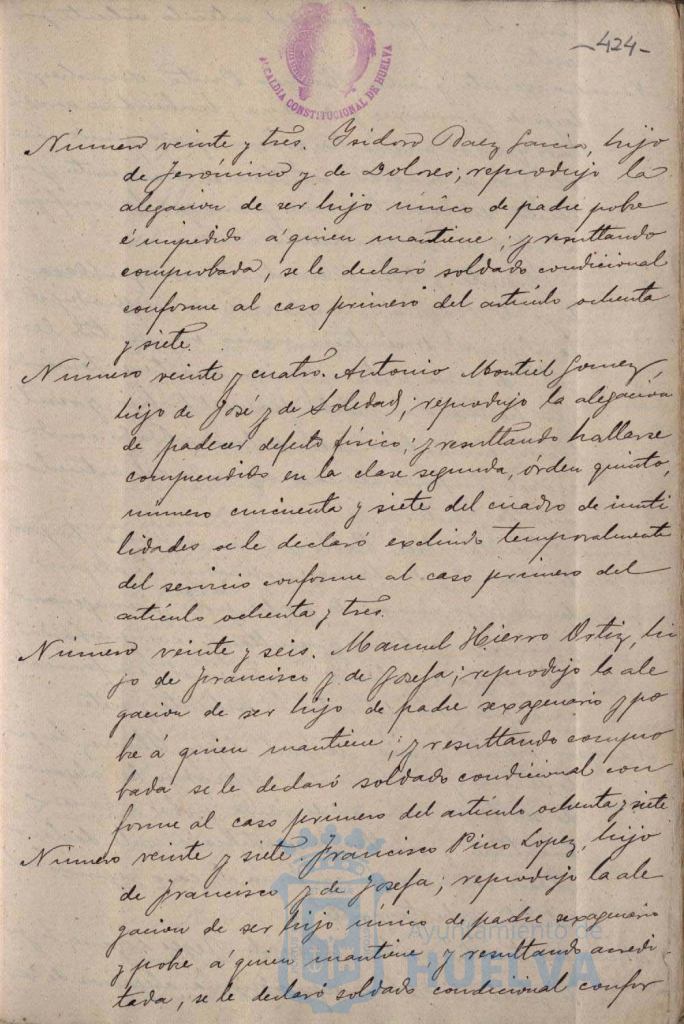 -424-
ALCALDIA CONSTITUCIONAL DE HUELVA
Número veinte y tres. Isidoro Baez Garcia, hijo
de Jerónimo y de Dolores; reprodujo la
alegacion de ser hijo único de padre pobre
é impedido á quien mantiene; y resultando
comprobada, se le declaró soldado condicional
conforme al caso primero del artículo ochenta
y siete.
Número veinte y cuatro. Antonio Montiel Gomez,
hijo de José y de Soledad; reprodujo la alegacion
de padecer defecto físico; y resultando hallarse
comprendido en la clase segunda, órden quinto,
número cincuenta y siete del cuadro de inuti
lidades se le declaró excluido temporalmente
del servicio conforme al caso primero del
artículo ochenta y tres.
Número veinte y seis. Manuel Hierro Ortiz, hi
jo de Francisco y de Josefa; reprodujo la ale
gacion de ser hijo de padre sexagenario y po
bre á quien mantiene; y resultando compro
bada se le declaró soldado condicional con
forme al caso primero del artículo ochenta y siete
Número veinte y siete. Francisco Pino Lopez, hijo
de Francisco y de Josefa; reprodujo la ale
gacion de ser hijo único de padre sexagenario
y pobre á quien mantiene y resultando acredi
tada, se le declaró soldado condicional confor
Ayuntamiento de
HUELVA